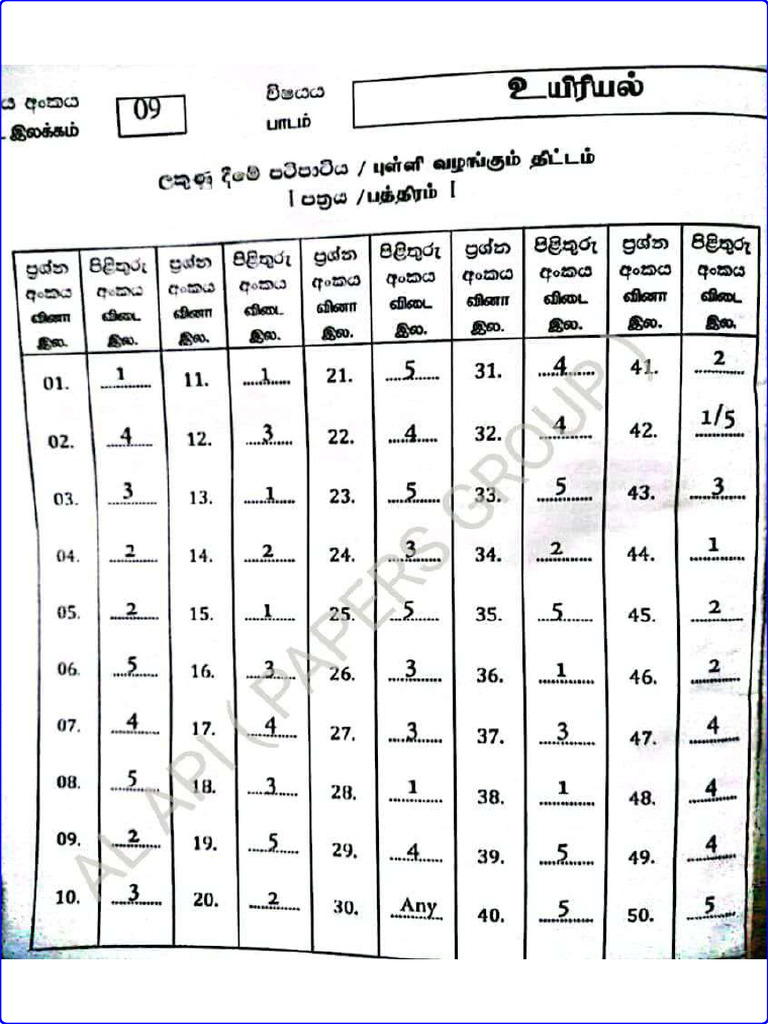 ය අංකය
இலக்கம்
09
විෂයය
பாடம்
உயிரியல்
ලකුණු දීමේ පටිපාටිය / புள்ளி வழங்கும் திட்டம்
I පත්‍රය /பத்திரம் I
ප්‍රශ්න පිළිතුරු ප්‍රශ්න පිළිතුරු ප්‍රශ්න පිළිතුරු ප්‍රශ්න පිළිතුරු ප්‍රශ්න පිළිතුරු
අංකය අංකය අංකය අංකය අංකය අංකය අංකය අංකය අංකය අංකය
வினா விடை வினா விடை வினா விடை வினா விடை வினா விடை
இல. இல. இல. இல. இல. இல. இல. இல. இல. இல.
01. 1 11. 1 21. 5 31. 4 41. 2
02. 4 12. 3 22. 4 32. 4 42. 1/5
03. 3 13. 1 23. 5 33. 5 43. 3
04. 2 14. 2 24. 3 34. 2 44. 1
05. 2 15. 1 25. 5 35. 5 45. 2
06. 5 16. 3 26. 3 36. 1 46. 2
07. 4 17. 4 27. 3 37. 3 47. 4
08. 5 18. 3 28. 1 38. 1 48. 4
09. 2 19. 5 29. 4 39. 5 49. 4
10. 3 20. 2 30. Any 40. 5 50. 5
AL API ( PAPERS GROUP )